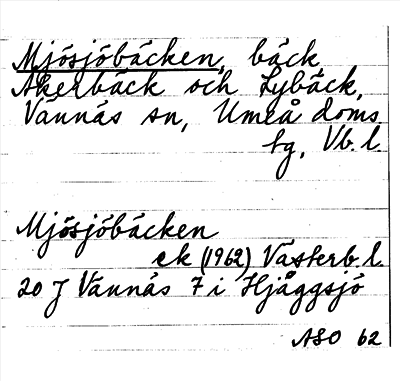 Mjösjöbäcken, bäck,
Åkerbäck och Lybäck,
Vännäs sn, Umeå doms.
tg, Vb. l.
Mjösjöbäcken
ek (1962) Västerb. l.
20 J Vännäs 7 i Hjåggsjö
ASO 62